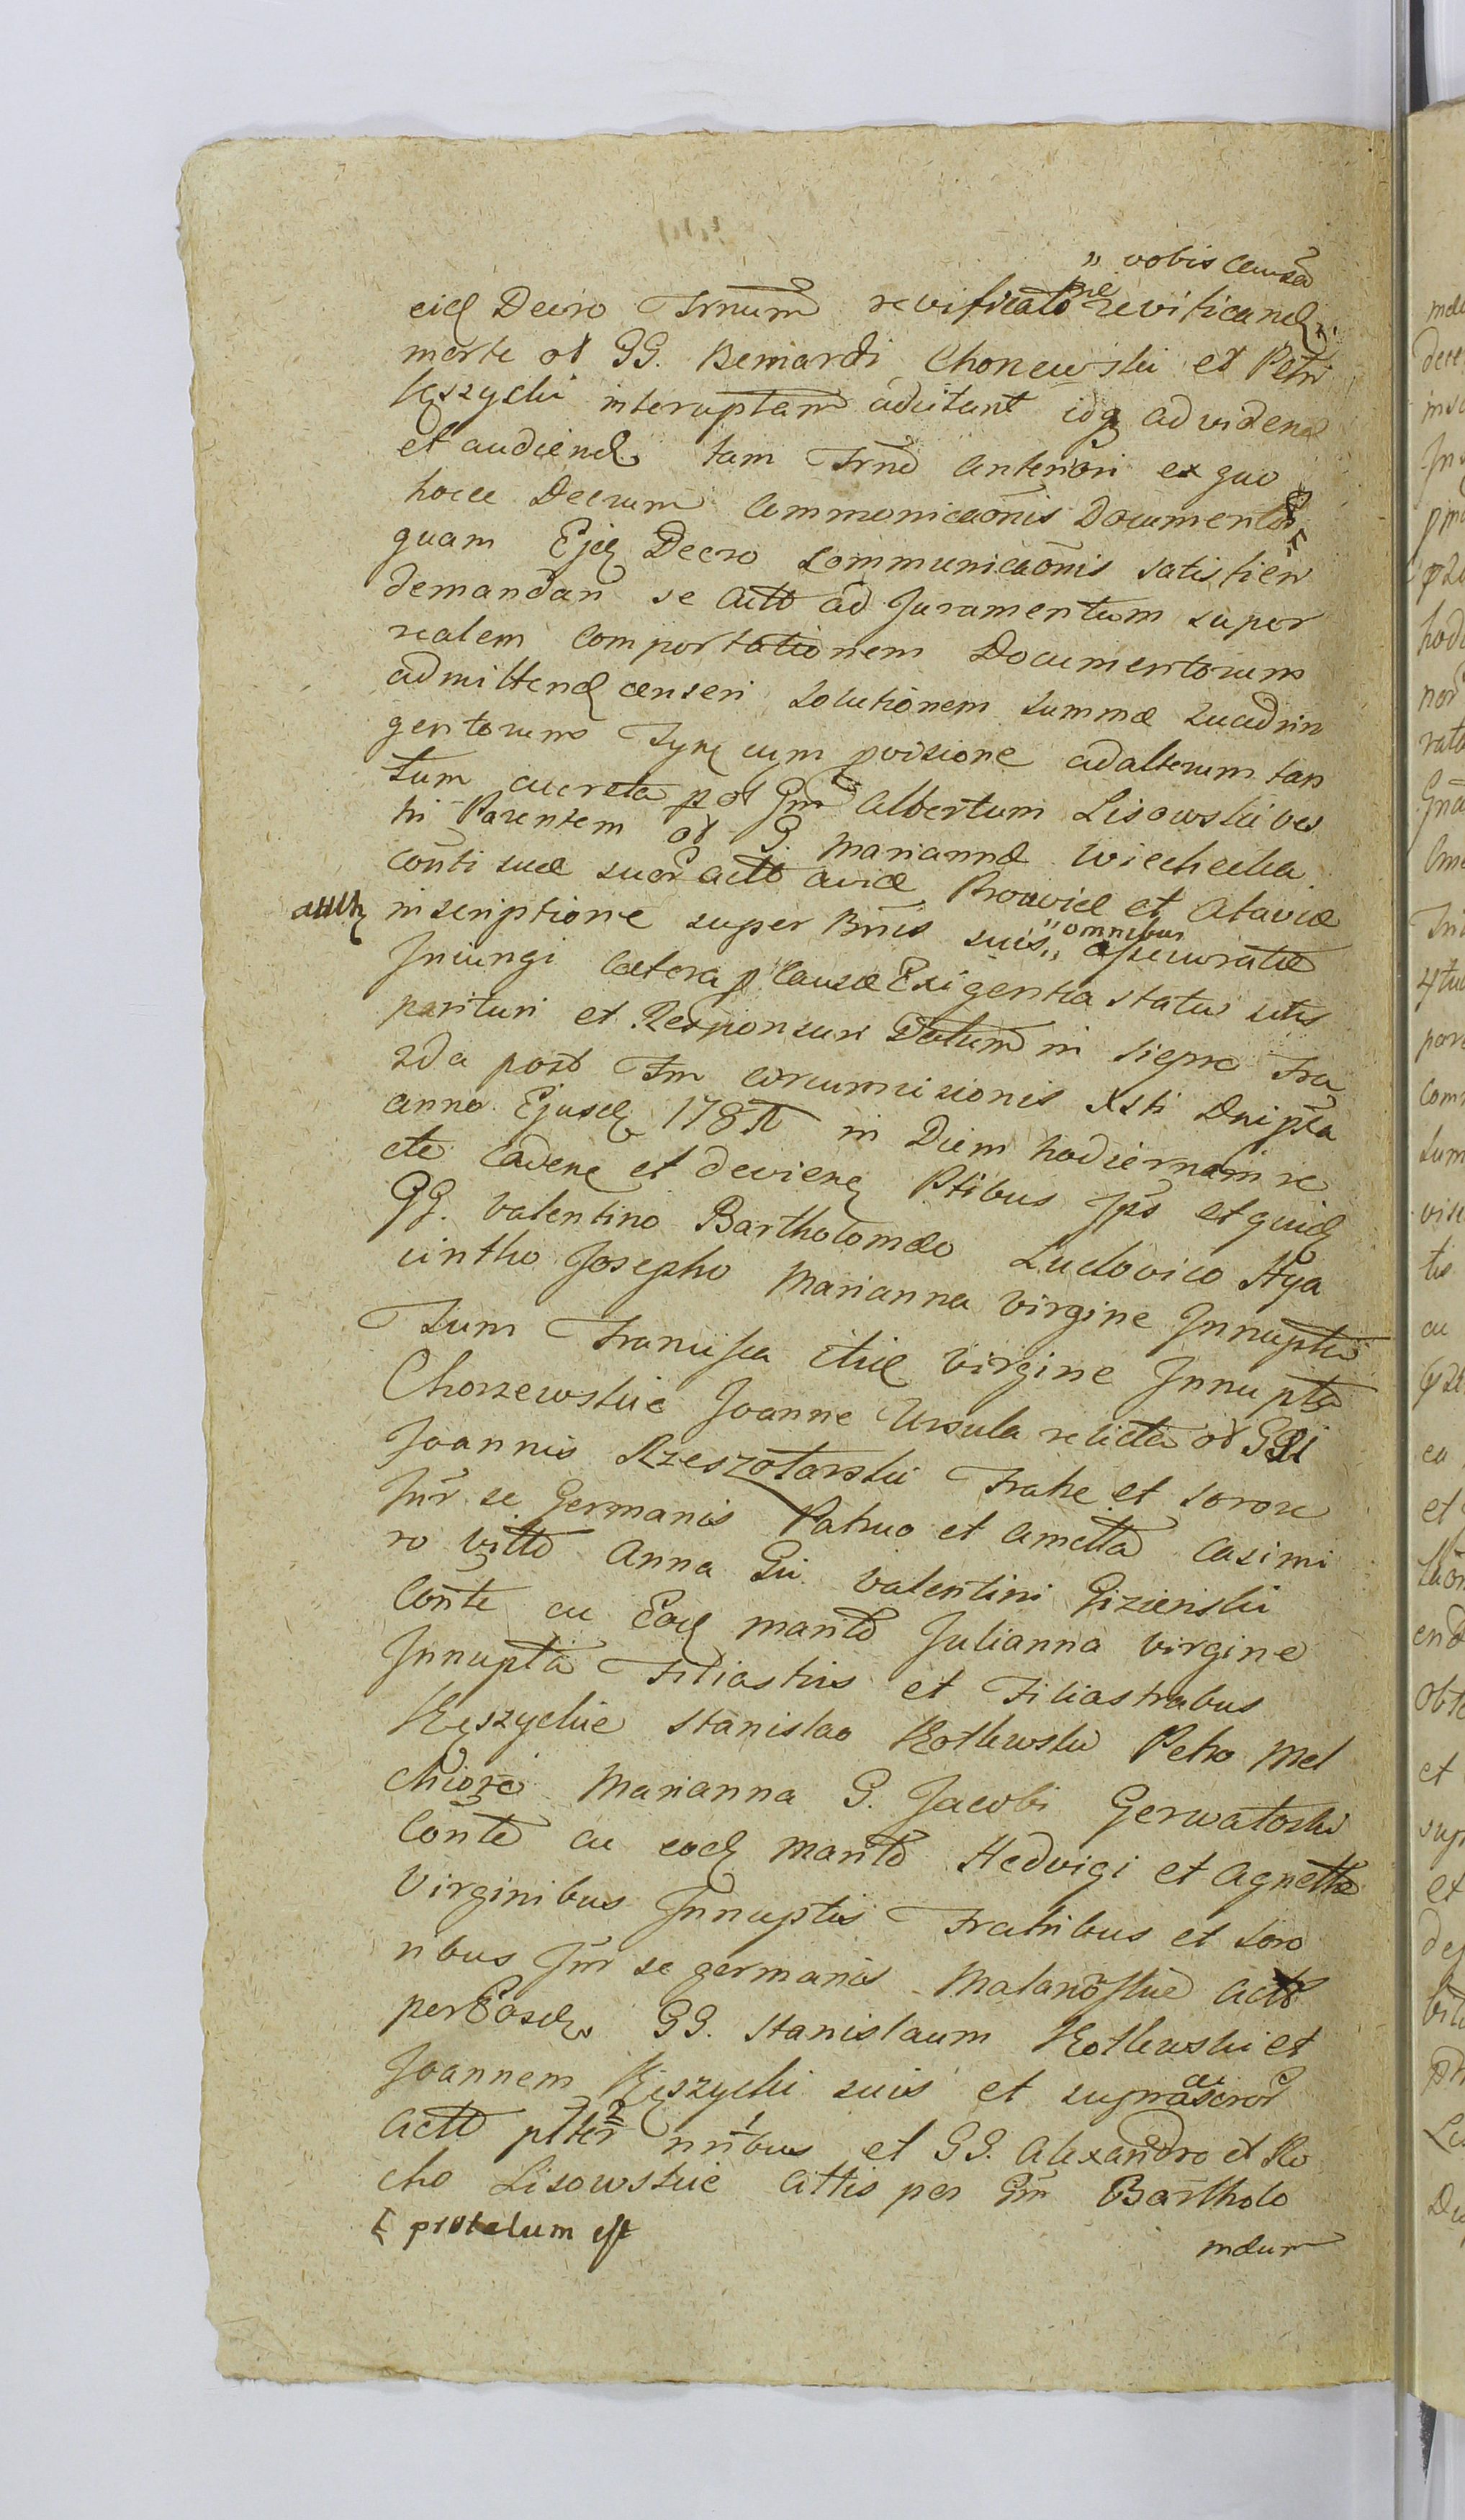 „ vobis causã
eid Decro Trnum revificato ne revificand
morte ol GG. Bernardi Chonewski et Petri
Kęszycki interuptam aducitant idq ad videnđ
et audiend tam Trno anteriori ex quo
hocce Decrum Communicaõnis Documentor
quam Ejd Decro Communicaõnis satisfien
demandan se Actt ad Juramentum super
realem Comportationem Documentorum
admittend censeri Solutionem Summæ Quadrin
gentorum Tynf cum pvisione ad alterum tan
tum accreta p ol Gm Albertum Lisowski ves
tri Parentem ol G. Mariannæ Wiechecka
Cõnti suæ sucr Actt aviæ Proaviæ et Ataviæ
inscriptione super Bnis suis „omnibus„ assecuratæ
Iniungi Cætera p Causæ Exigentia statui setis
parituri et Responsuri Datum in Sierpc Fra
2da post Fm circumcisionis Xsti Dni pta
anno Ejusd 178 in Diem hodiernam re
cte Cadenę et devienę Ptibus Ips et quid
GG. Valentino Bartholomæo Ludovico Hya
cintho Josepho Marianna Virgine Innupta
Tum Francisca itid Virgine Innupta
Chorzewskie Joanne Ursula relicta ol GGi
Joannis Rzeszotarski Fratre et Sorore
Intr se Germanis Patruo et Ametta Casimi
ro Vitto Anna Gi Valentini Gizienski
Conte cu Eod marito Julianna Virgine
Innupta Filiastris et Filiastrabus
Kęszyckie Stanislao Kotlewski Petro Mel
chiore Marianna G. Jacobi Gerwatoski
Cõnte cu eod Marito Hedvigi et Agnetta
Virginibus Innuptis Fratribus et Soro
ribus Intr se germanis Malanoskie Actt
per Eosd GG. Stanislaum Kotlewski et
Joannem Kęszycki suis et supra scror
Actt ptter nnibus et GG. Alexandro et Ro
cho Lisowskie Cittis per Gm Bartholo
[ protelum est
mæum